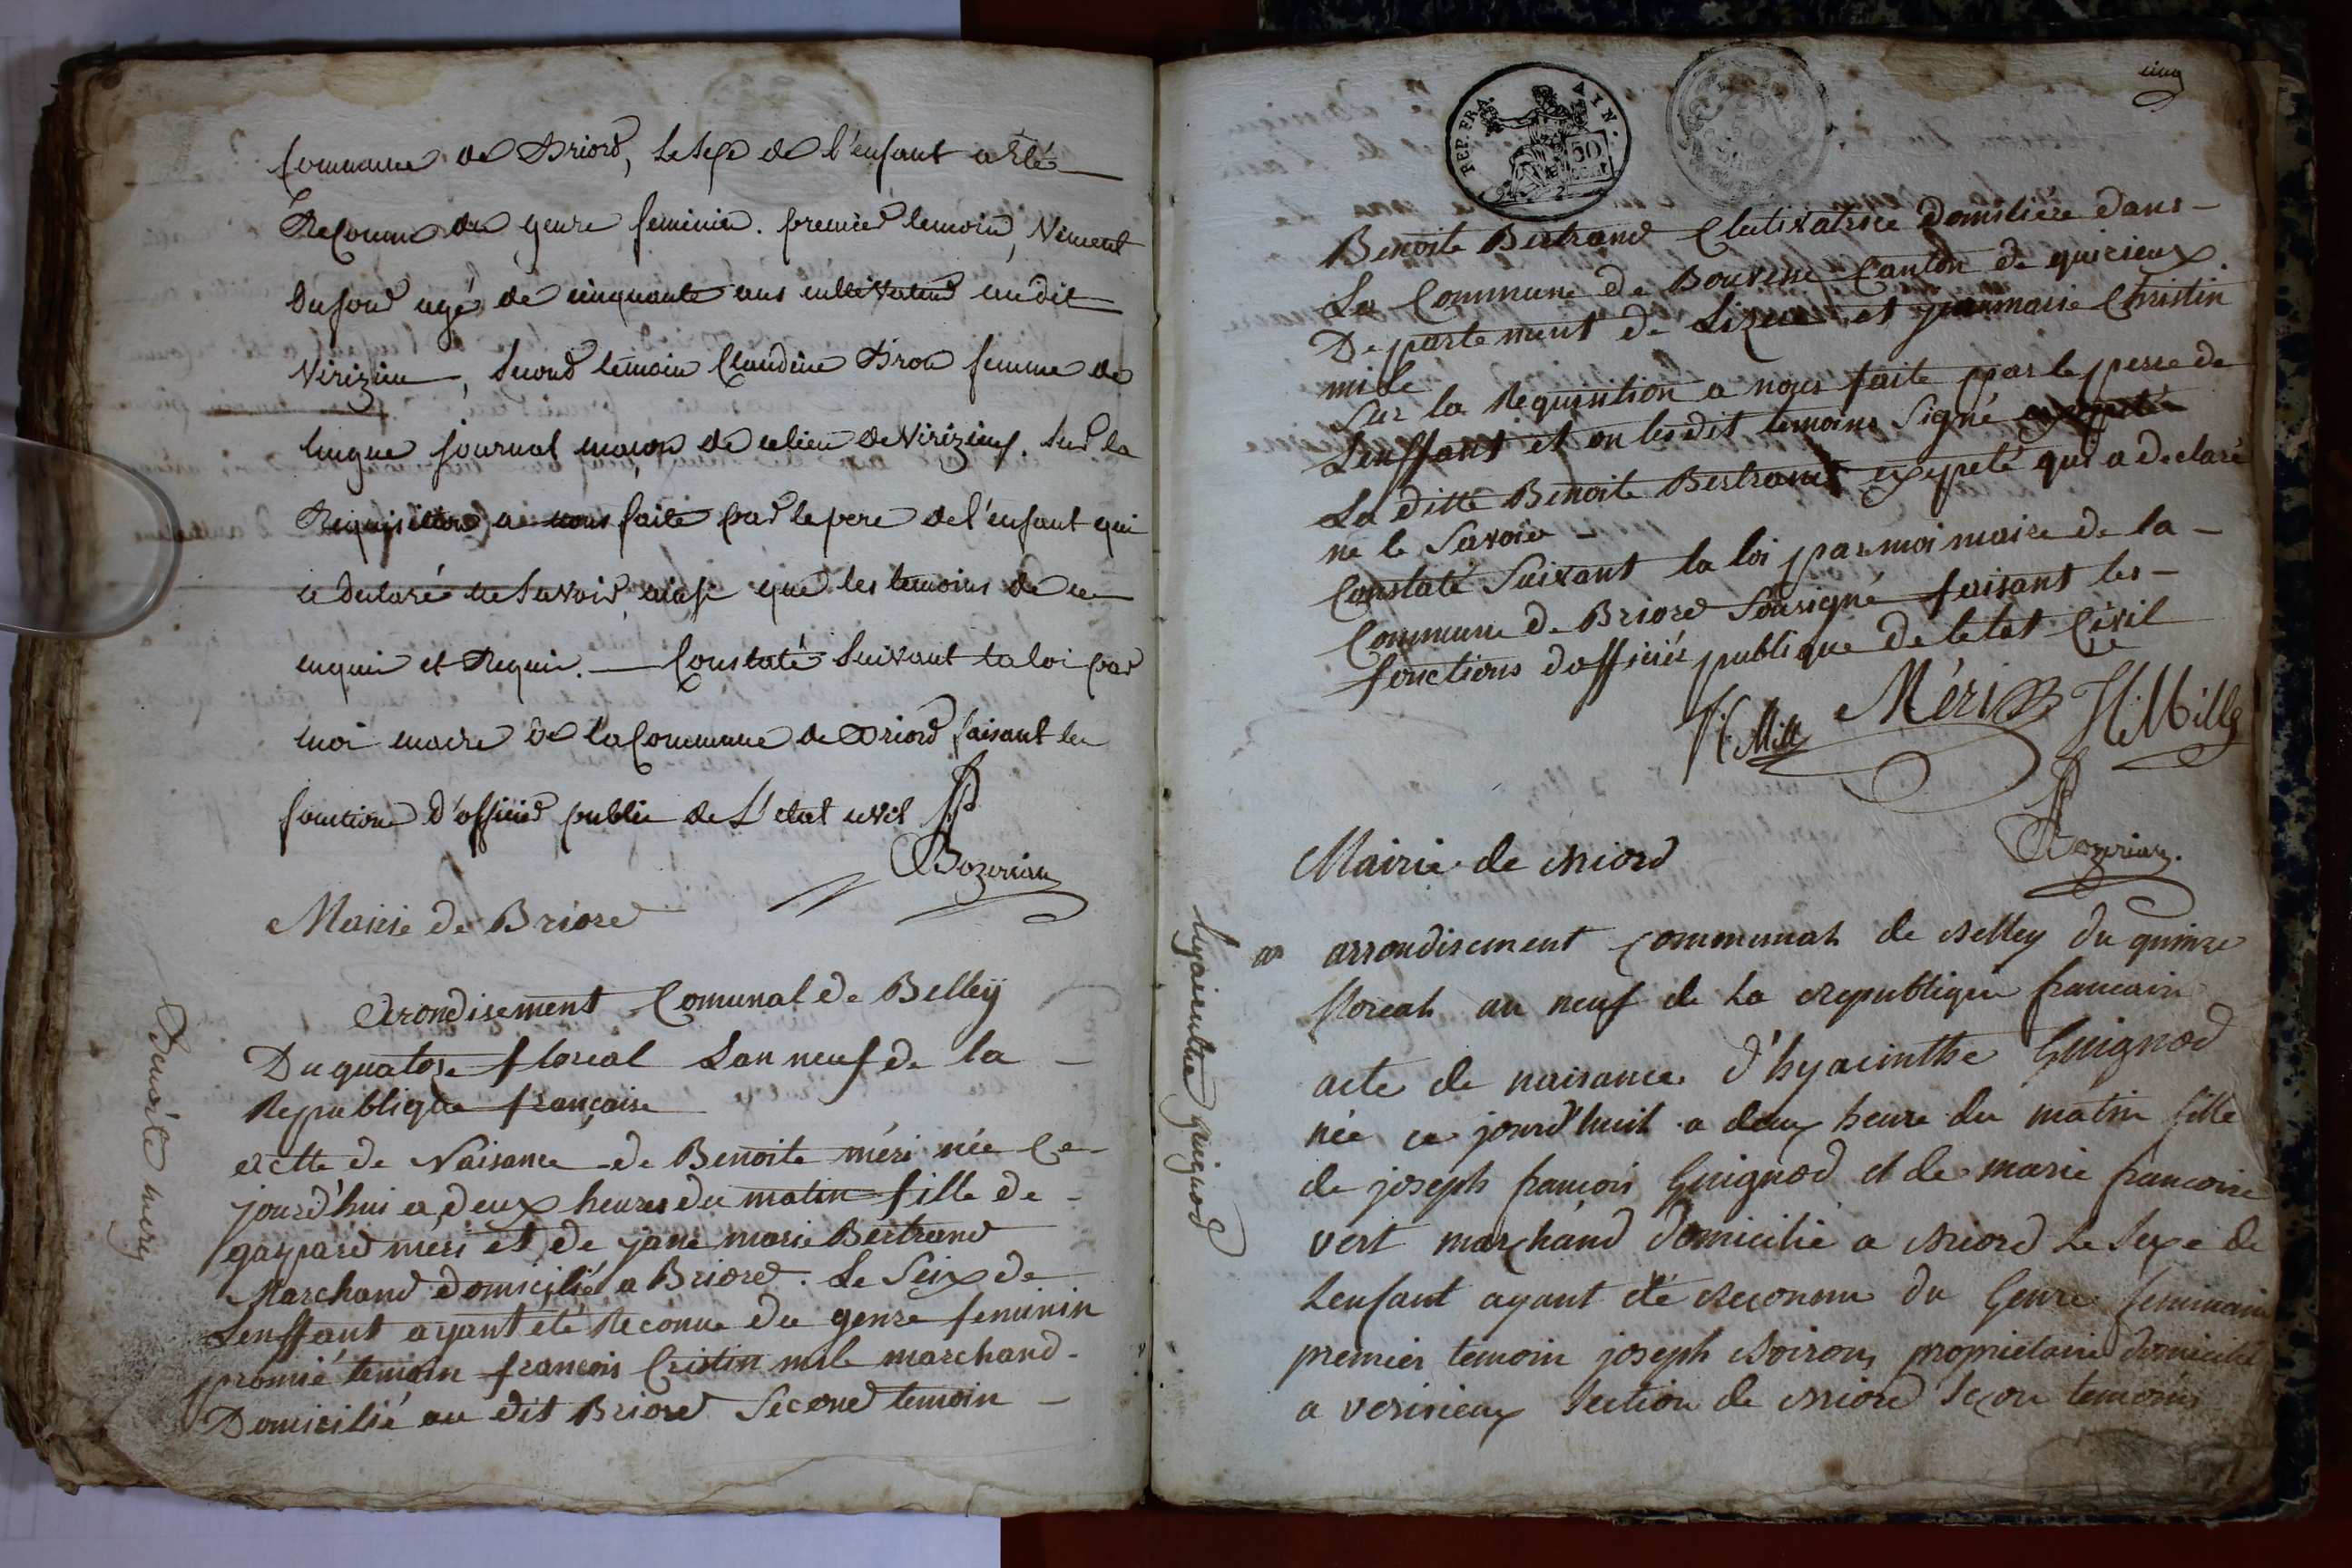 commune de Briord, le sexe de l'enfant a été
Reconnu du genre feminin. premier temoin, Vincent
Dufour agé de cinquante ans cultivateur audit
Virizieu, second temoin Claudine Brou femme de
journal maçon de celieu de Virizieux. Sur la
Requisition a nous faite par le pere de l'enfant qui
a declaré ne savoir, ainsi que les temoins de ce
enquis et Requis. Constaté suivant la loi par
moi maire de la Commune de Briord faisant les
fonctions d'officier public de L'etat civil
Bozerian
Mairie de Briord
Benoite mery
Arondisement Comunal de Belley
Du quatorse floreal Lan neuf de la
Republique française
actte de Naisance de Benoite méri née Ce
jourd'hui a deux heures du matin fille de
gaspard meri et de jane marie Bertrand
Marchand domicilié a Briord. Le Seix de
Lenffant ayant été Reconnu du genre feminin
promié temoin francois Cristin mile marchand
Domicilié au dit Briord Second temoin
cinq
REP. FRA. AIN.
50
Benoite Bertrand Clutivatrice domiliére dans
La Commune de Bouvesse Canton de quirieux
Departement de Lizere et janmarie Christin
mile
Sur la Requisition a nous faite par le perre de
Lenffant et on lesdit temoins Signé
La ditte Benoite Bertrand exepeté qui a declaré
ne le Savoir
Constaté Suivant la loi par moi maire de la
Commune de Briord Sousigné faisant les
fonctions dofficiés publique de letat Civil
Méri
Bozerian
Mairie de Briord
hyaiceinthe guignod
arrondisement communal de Belley du quinze
floreal an neuf de la Republique francaise
acte de naisance d'hyacinthe Guignod
née ce jourd'huit a deux heure du matin fille
de joseph francois Guignod et de marie francoise
vert marchand domicilié a Briord Le Sexe de
Lenfant ayant été Reconnu du Genre feminain
premier temoin joseph Boiron propriétaire domicilié
a verisieux Section de Briord Secon temoins